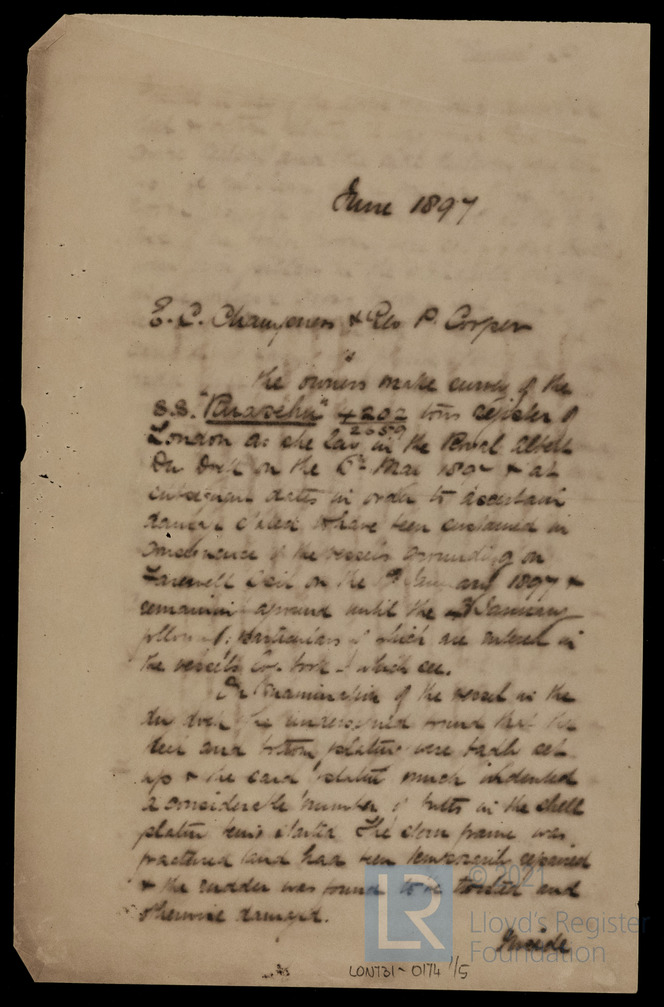 June 1897
E. C. Champness & Geo P. Cooper
the owners make survey of the
S.S. "Ruapehu" 4202 tons register of
2659
London as she lay in the Royal Albert
Dry Dock on the 6th May 1897 & at
subsequent dates in order to ascertain
damage stated to have been sustained in
consequence of the vessels grounding on
Farewell Spit on the 1st January 1897 &
remaining aground until the January
following, particulars of which are entered in
the vessels log book - which see.
On examination of the vessel in the
dry dock the undersigned found that the
keel and bottom plating were badly set
up & the said plating much indented
a considerable number of butts in the shell
plating being started. The stern frame was
fractured and had been temporarily repaired
& the rudder was found to be twisted and
otherwise damaged.
Inside
LON731-0174 1/5
LR
© 2021
Lloyd's Register
Foundation